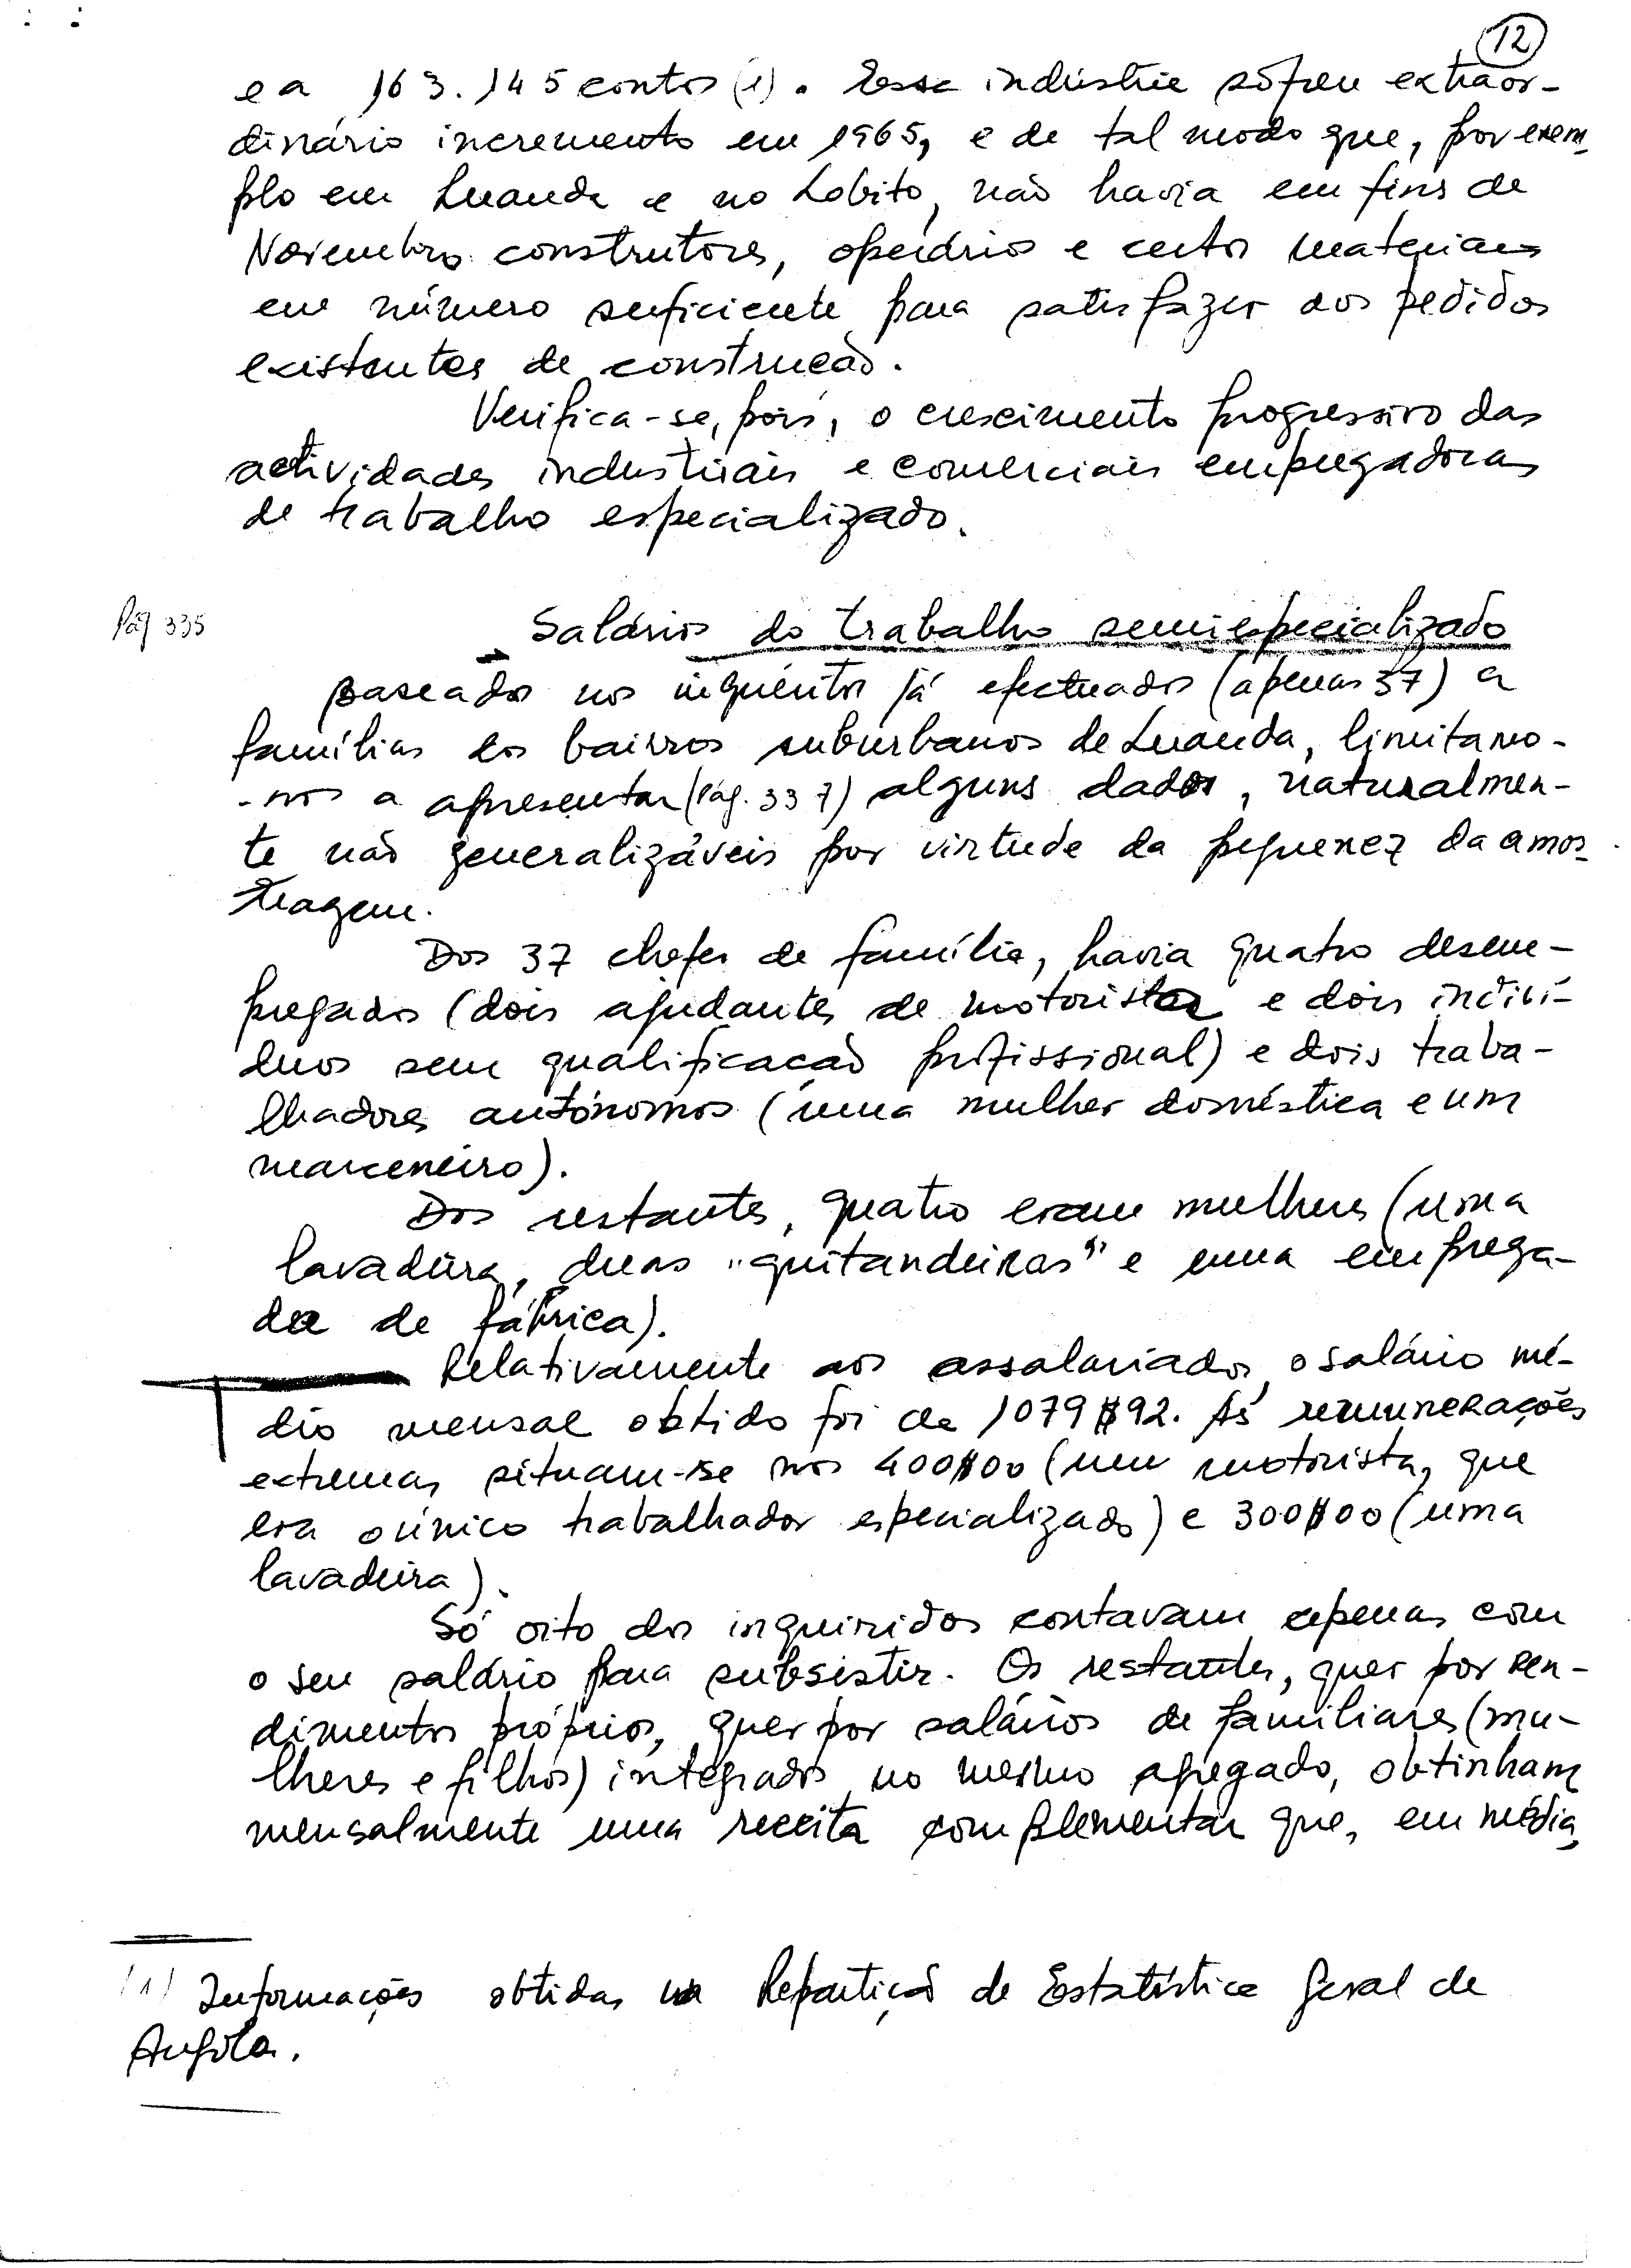 12
e a 163.145 contos (1). Essa indústria sofreu extraor-
dinário incremento em 1965, e de tal modo que, por exem-
plo em Luanda e no Lobito, não havia em fins de
Novembro construtores, operários e certos materiais
em número suficiente para satisfazer aos pedidos
existentes de construção.
Verifica-se, pois, o crescimento progressivo das
actividades industriais e comerciais empregadoras
de trabalho especializado.
Pág 335
Salários do trabalho semiespecializado
Baseados nos inquéritos já efectuados (apenas 37) a
famílias dos bairros suburbanos de Luanda, limitamo-
-nos a apresentar (Pág. 337) alguns dados, naturalmen-
te não generalizáveis por virtude da pequenez da amos-
tragem.
Dos 37 chefes de família, havia quatro desem-
pregados (dois ajudantes de motorista e dois indiví-
duos sem qualificação profissional) e dois traba-
lhadores autónomos (uma mulher doméstica e um
marceneiro).
Dos restantes, quatro eram mulheres (uma
lavadeira, duas "quitandeiras" e uma emprega-
da de fábrica).
Relativamente aos assalariados, o salário mé-
dio mensal obtido foi de 1079$92. As remunerações
extremas situam-se nos 400$00 (um motorista, que
era o único trabalhador especializado) e 300$00 (uma
lavadeira).
Só oito dos inquiridos contavam apenas com
o seu salário para subsistir. Os restantes, quer por ren-
dimentos próprios, quer por salários de familiares (mu-
lheres e filhos) integrados no mesmo agregado, obtinham
mensalmente uma receita complementar que, em média,
(1) Informações obtidas na Repartição de Estatística Geral de
Angola.